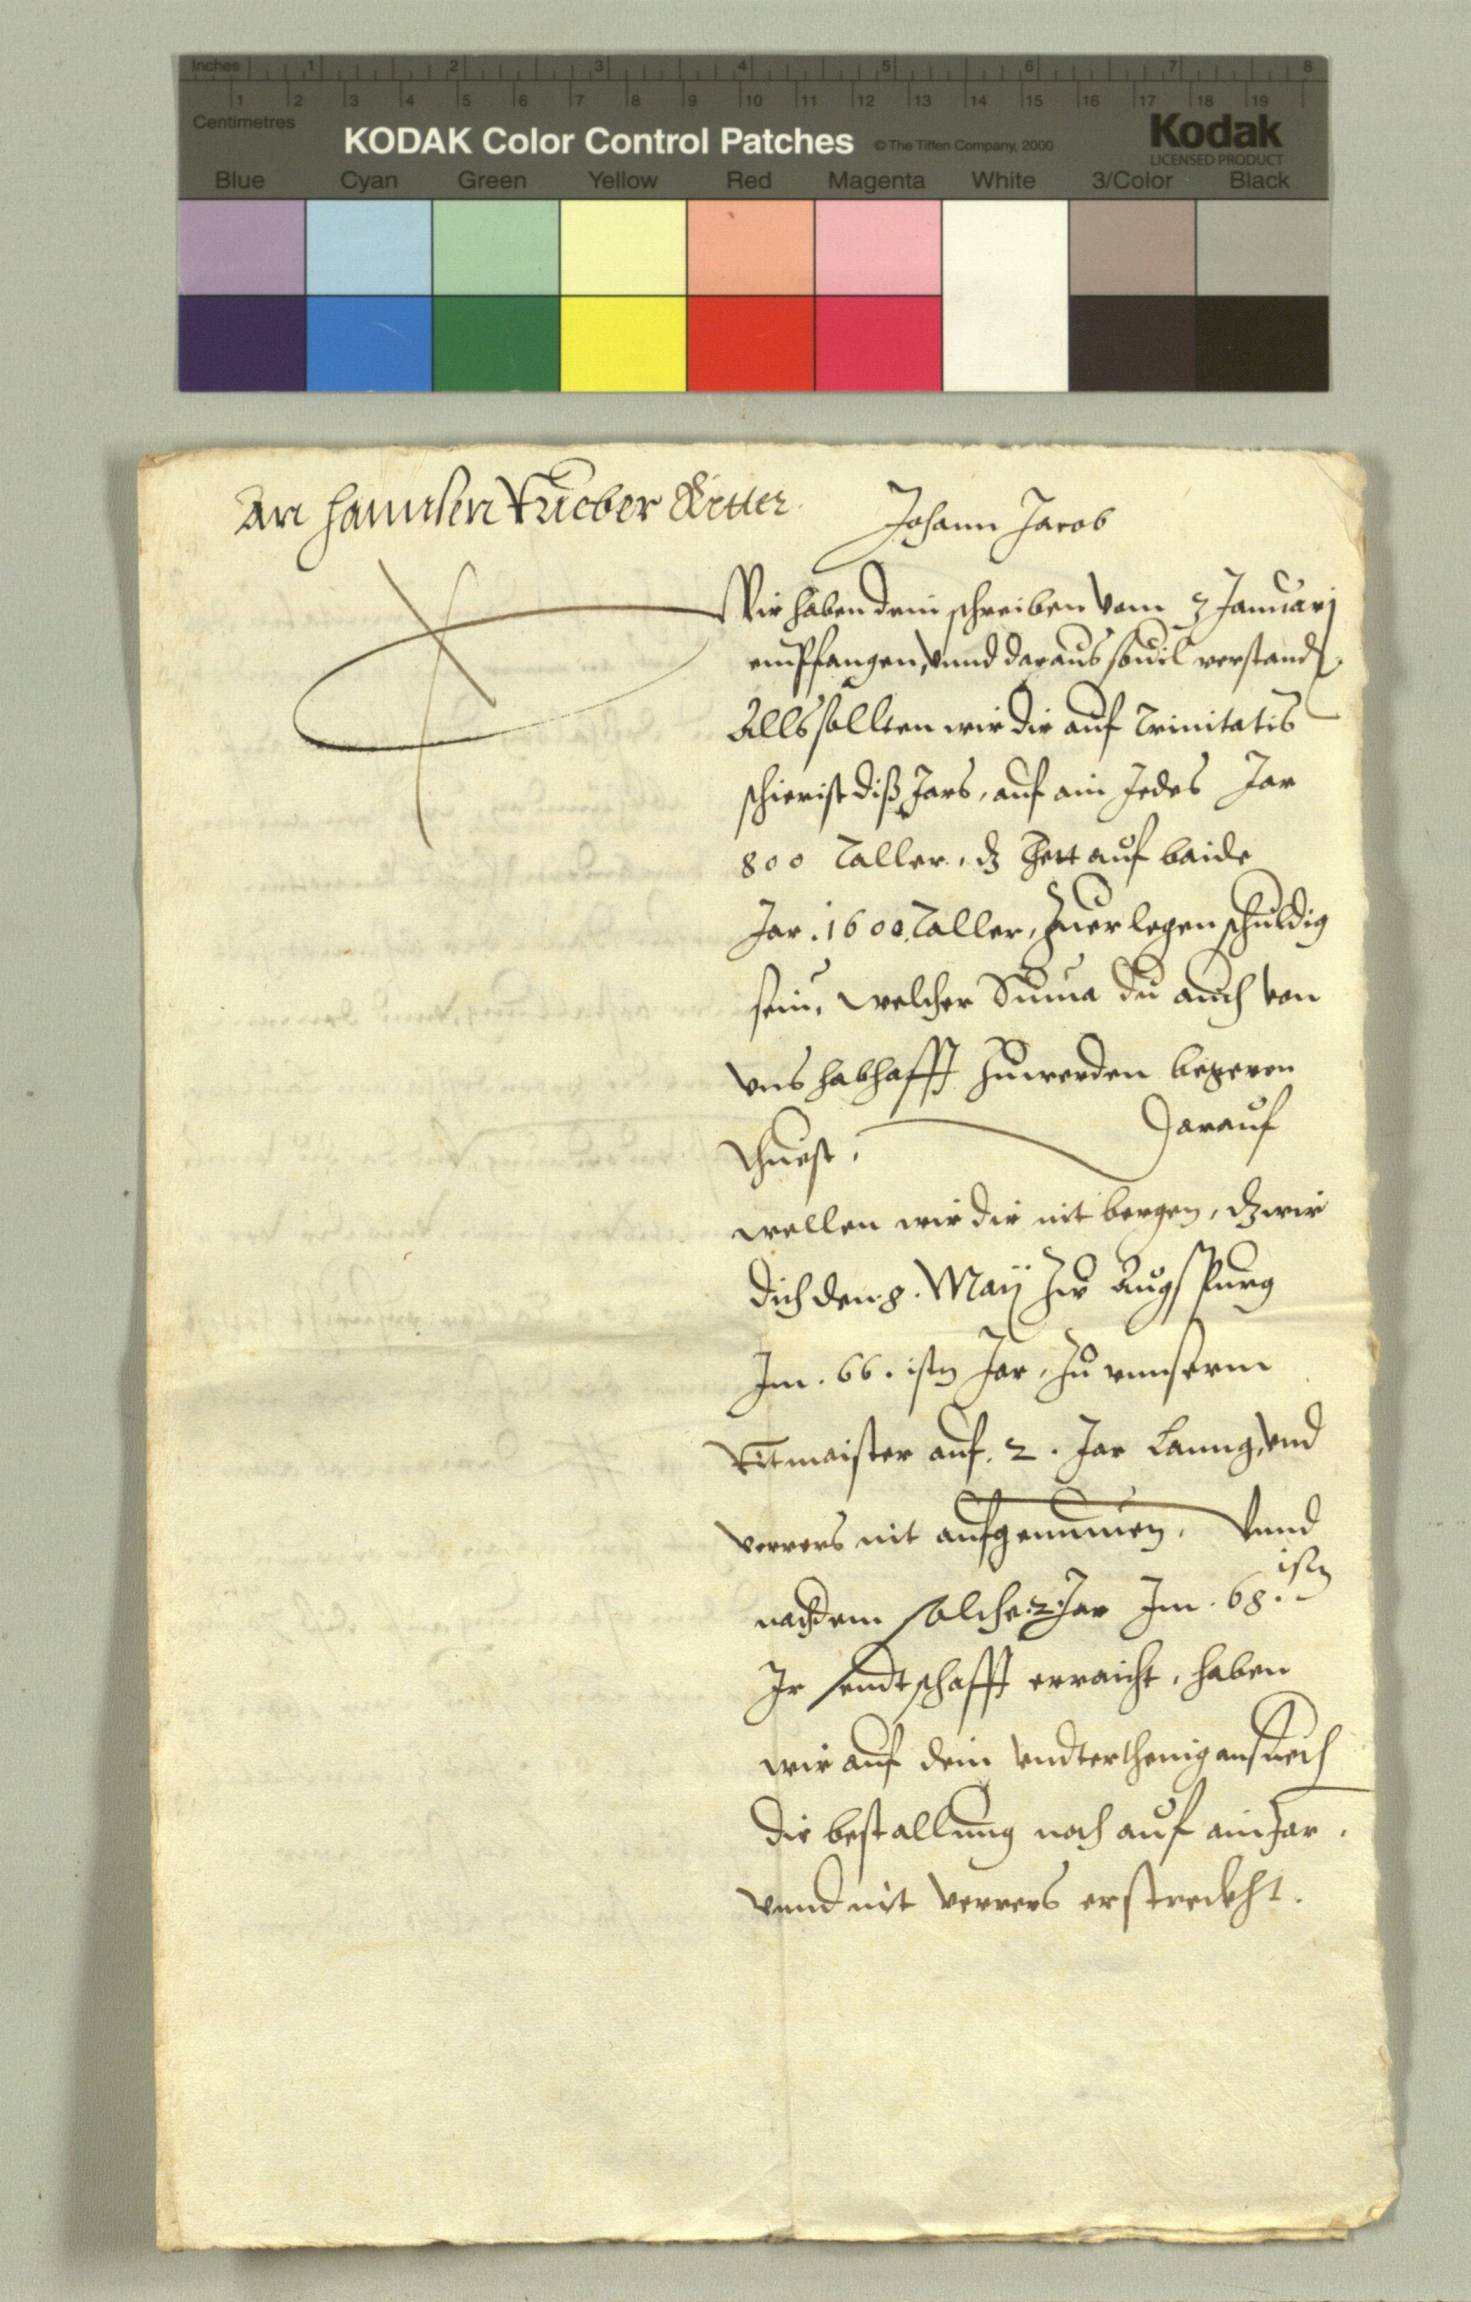 Inches 1 2 3 4 5 6 7 8
1 2 3 4 5 6 7 8 9 10 11 12 13 14 15 16 17 18 19
Centimetres
KODAK Color Control Patches © The Tiffen Company, 2000 Kodak
LICENSED PRODUCT
Blue Cyan Green Yellow Red Magenta White 3/Color Black
An hannsen Rueber Ritter. Johann Jacob
Wir haben dein schreiben vom 3 Januarj
empfangen, vnnd daraus souil verstand,
Alls sollten wir dir auf Trinitatis
schierist diß Jars, auf ain Jedes Jar
800 Taller, dz auf baide
Jar .1600. Taller, zuerlegen schuldig
sein, welcher Suma du auch von
vns habhafft zuwerden begeren
thuest. Darauf
wellen wir dir nit bergen, dz wir
dich den .8. Maij zw Augspurg
Im .66. istn Jar, zu vnnserm
Ritmaister auf .2. Jar Lanng, vnd
verrers nit aufgenumen. Vnnd
nachdem solche .2. Jar Im .68. istn
Ir endtschafft erraicht, haben
wir auf dein vndterthenig ansuech
die bestallung noch auf ain Jar.
vnnd nit verrers erstreckht.